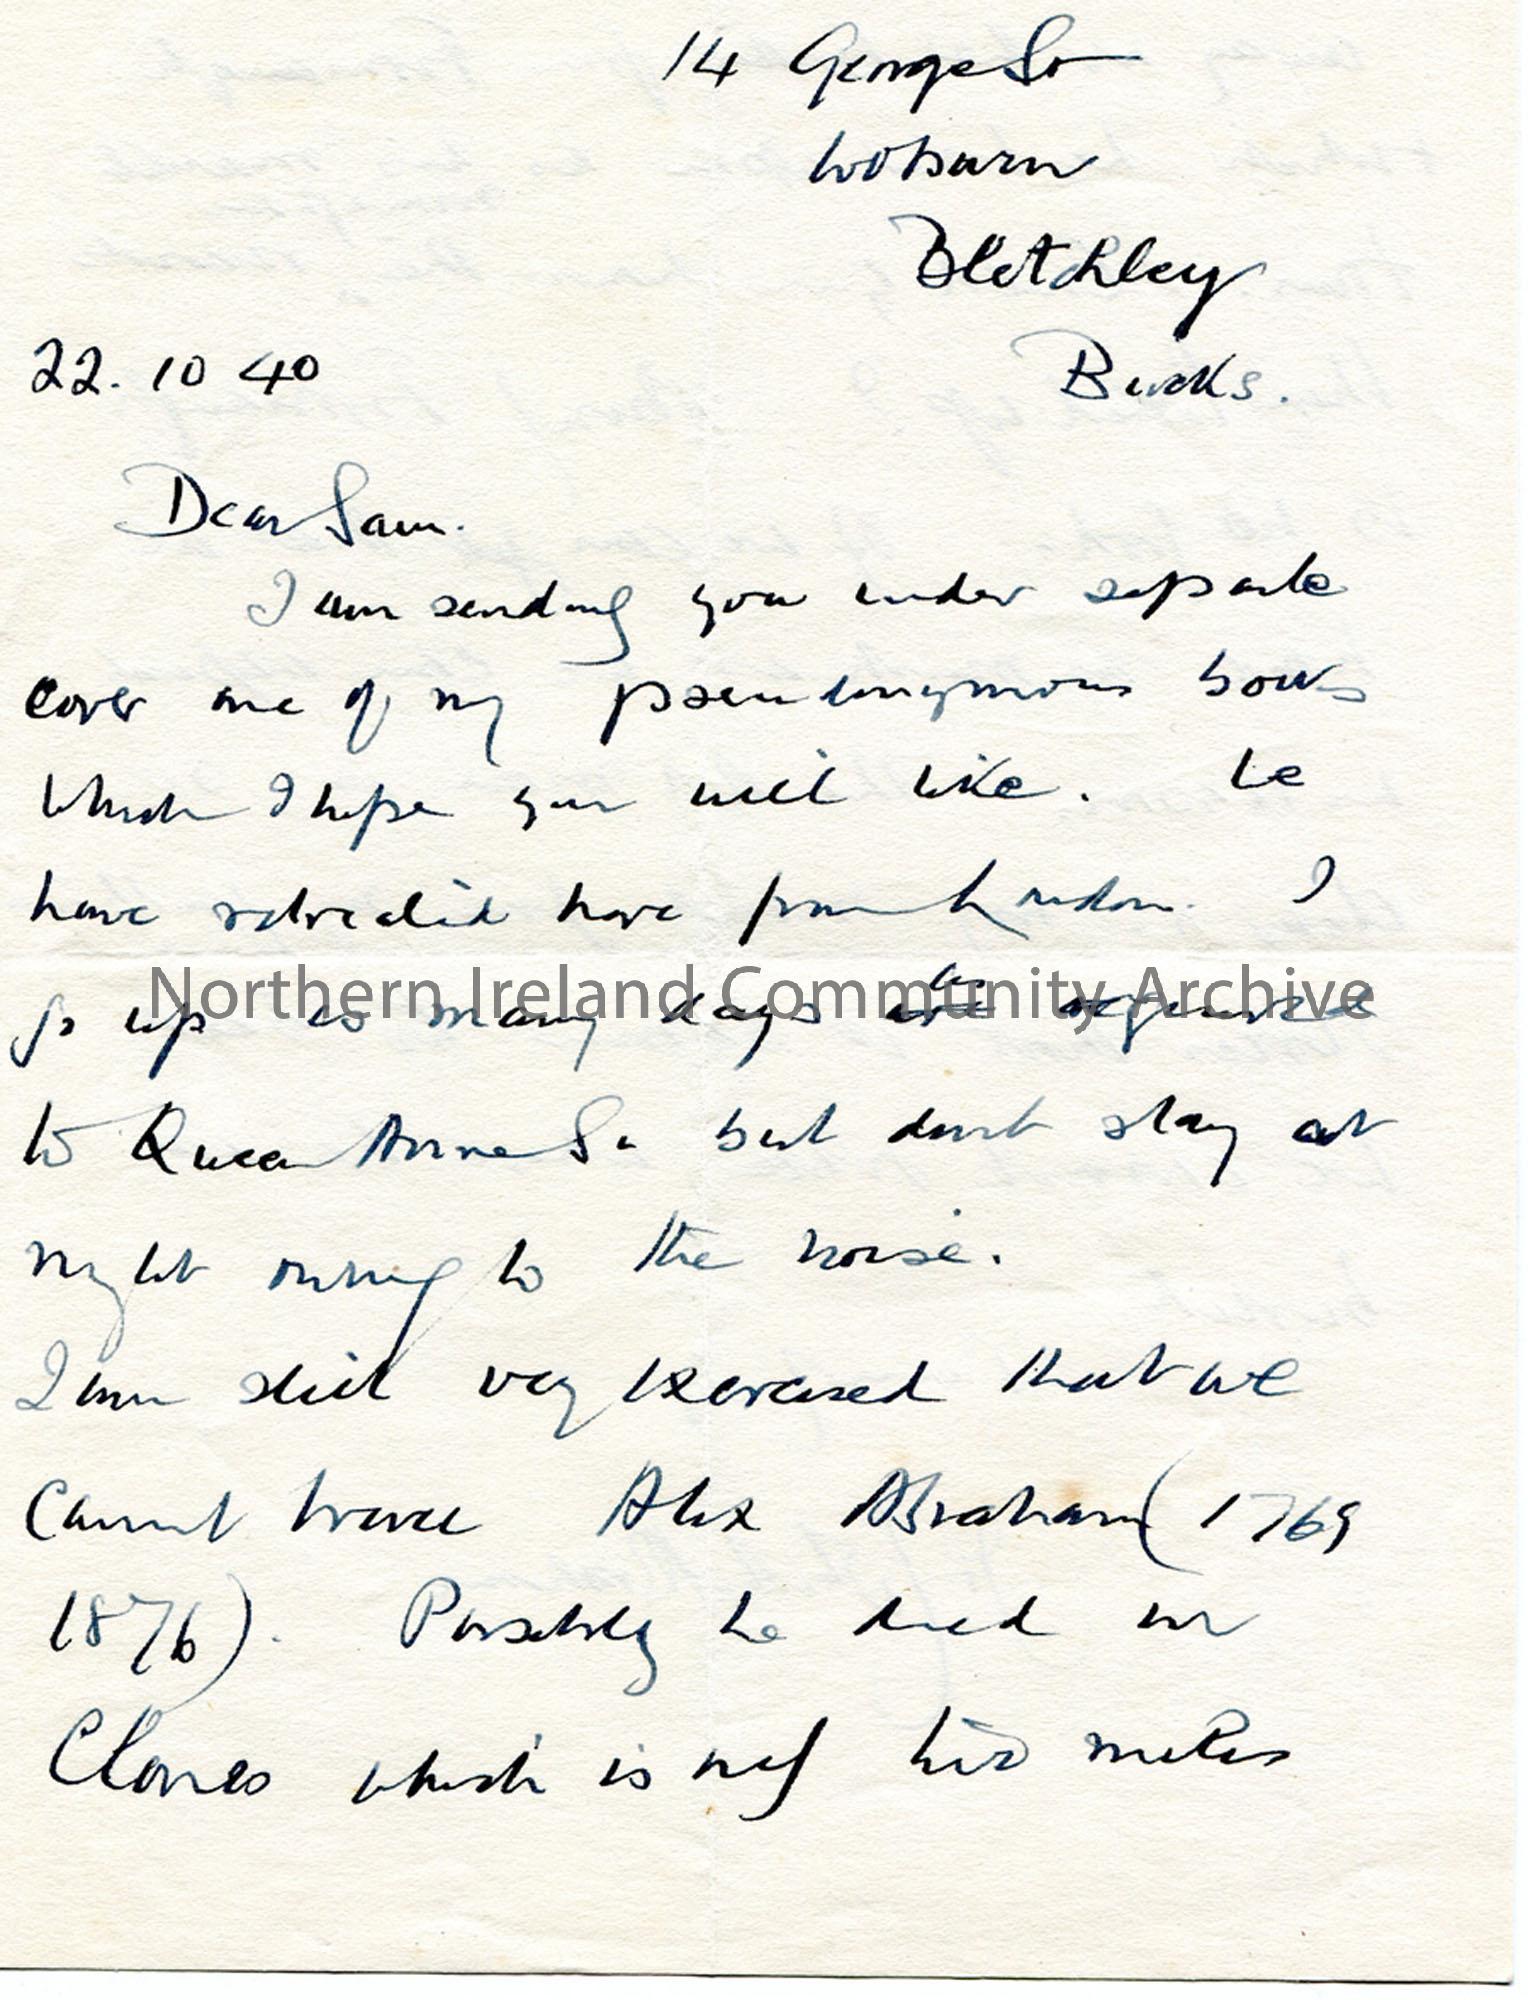 14 George St
Woburn
Bletchley
Bucks.
22. 10 40
Dear Sam.
I am sending you under separate
cover one of my pseudonymous books
which I hope you will like. We
have retreated here from London. I
go up as many days as required
Northern Ireland Community Archive
to Queen Anne St but dont stay at
night owing to the noise.
I am still very exercised that we
cannot trace Alex Abraham (1769
1876). Possibly he died in
Clones which is only two miles